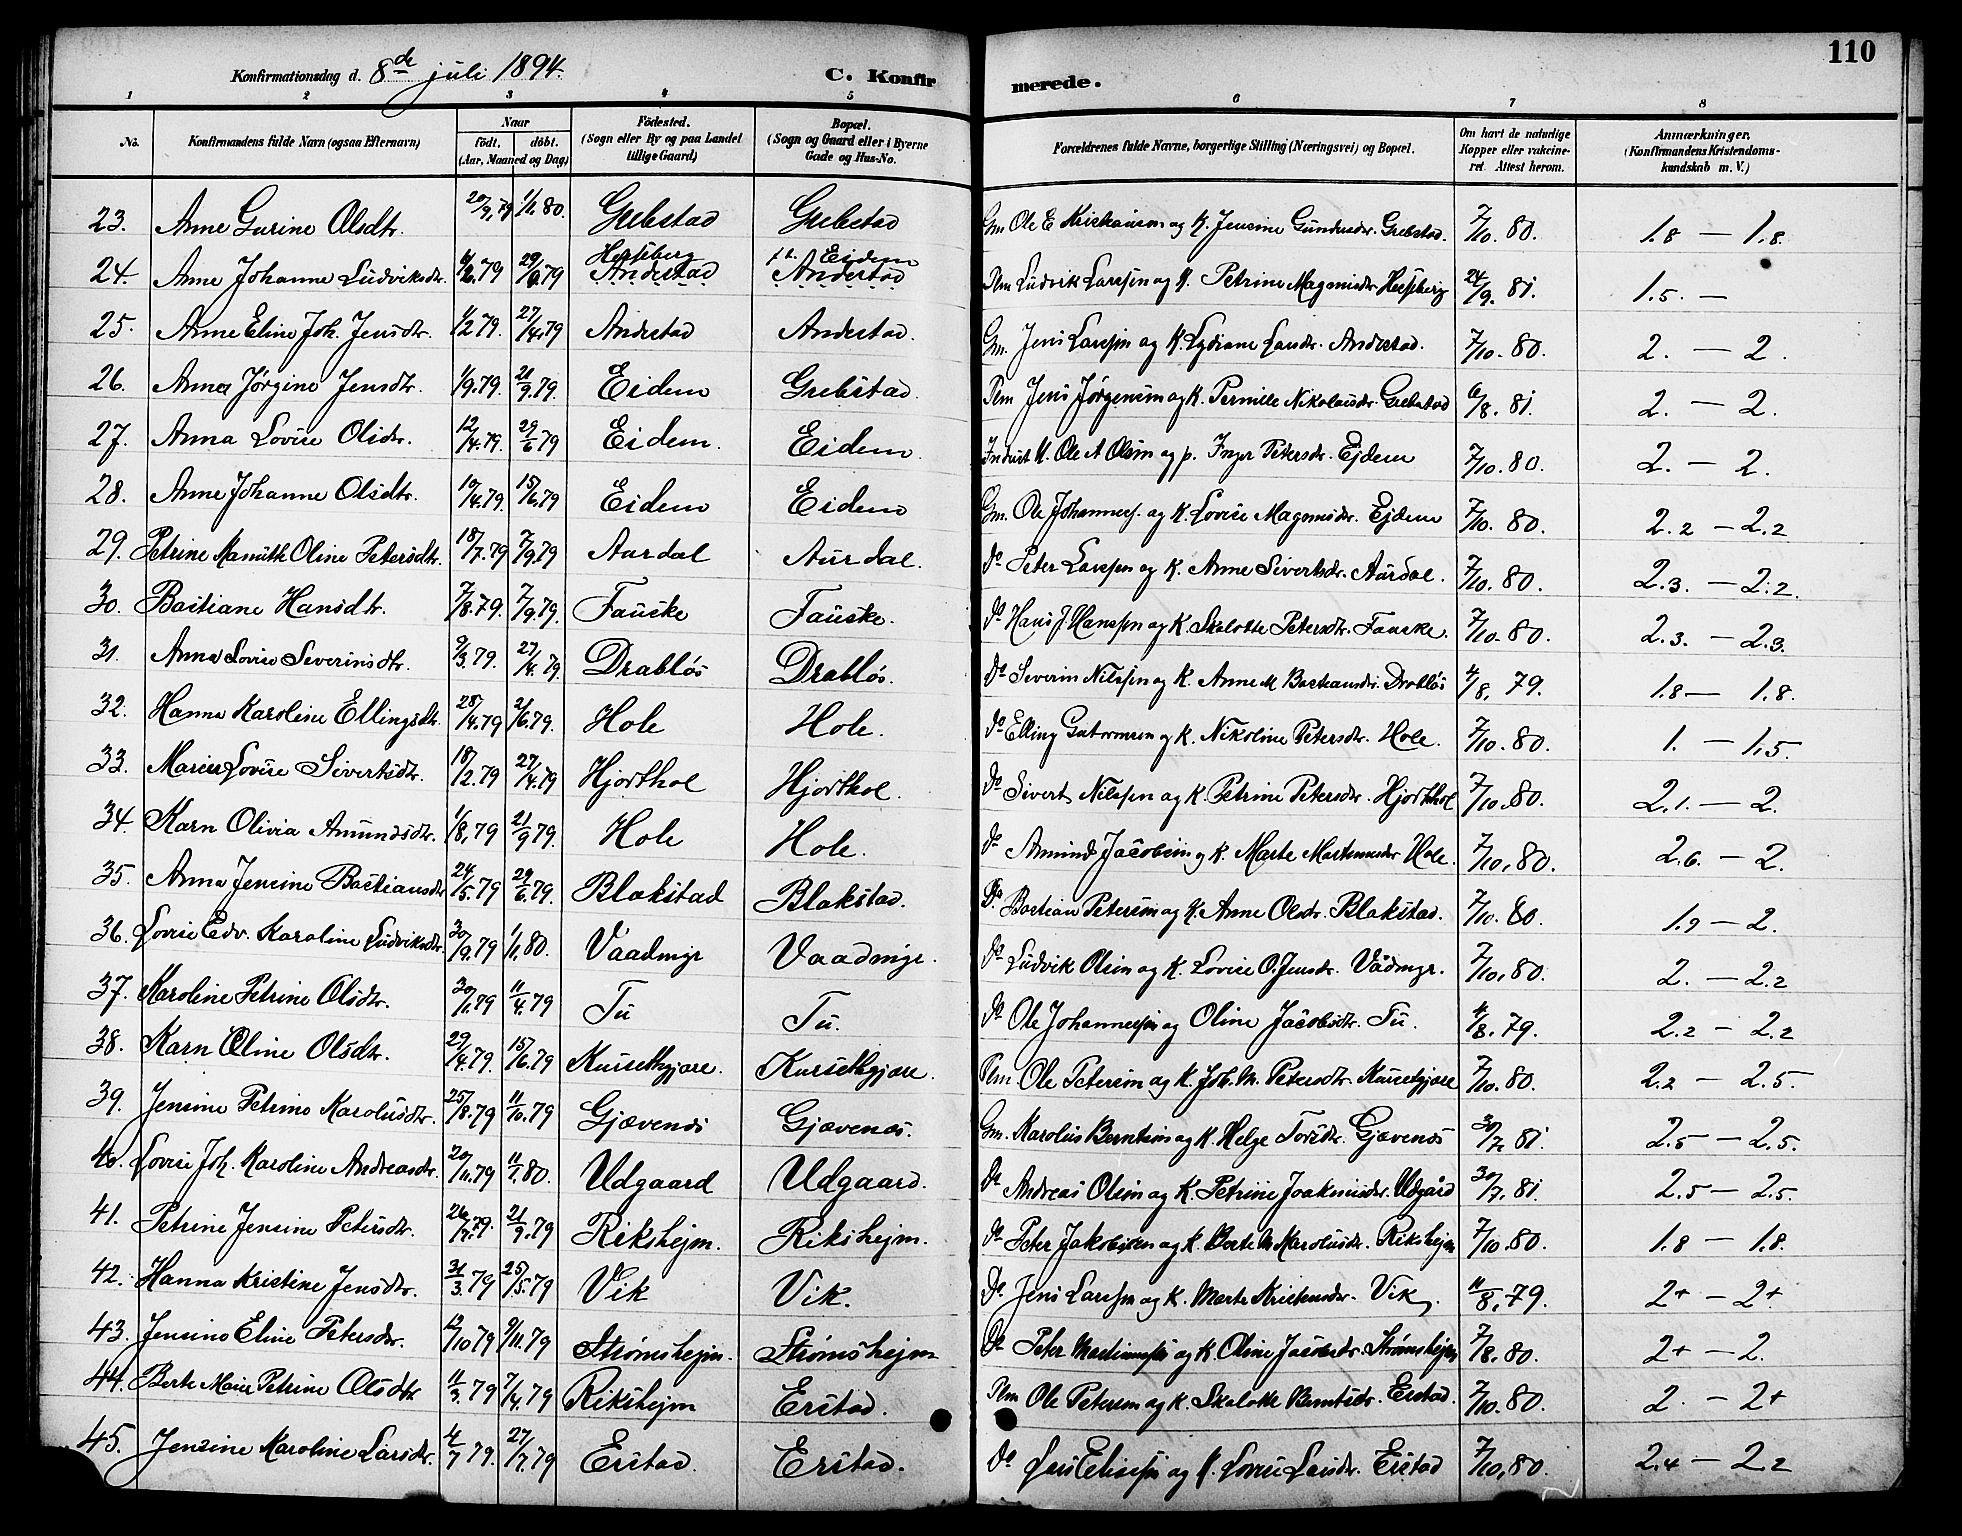 Konfirmationsdag d. 8de juli 1894. C. Konfirmerede. 110
1 2 3 4 5 6 7 8
No. Konfirmandens fulde Navn (ogsaa Efternavn) Naar født. døbt. (Aar, Maaned og Dag) Fødested. (Sogn eller By og paa Landet tillige Gaard) Bopæl. (Sogn og Gaard eller i Byerne Gade og Hus-No. Forældrenes fulde Navne, borgerlige Stilling (Næringsvei) og Bopæl. Om havt de naturlige Kopper eller vaccineret. Attest herom. Anmærkninger. (Konfirmandens Kristendomskundskab m. V.)
23. Anne Gurine Olsdtr. 20/9.79 1/1.80. Grebstad Grebstad Gm. Ole E Kristiansen og K. Jensine Gundersdr. Grebstad. 7/10.80. 1.8 — 1.8.
24. Anne Johanne Ludviksdr. 79 29/6.79 Hessberg Anderstad Eidem Anderstad Plm Ludvik Larssen og K. Petrine Magnusdr. Hessberg 24/9.81. 1.5. —
25. Anne Eline Joh. Jensdtr. 1/2 79. 27/4.79 Anderstad Anderstad. Gm. Jens Larssen og K. Lydiane Larsdr. Anderstad. 7/10.80. 2. — 2.
26. Anna Jørgine Jensdtr. 1/9.79. 21/9.79. Eidem Grebstad. Plm Jens Jørgensen og K. Pernille Nikolaisdr. Grebstad 6/8.81. 2. — 2.
27. Anna Lovise Olsdr. 12/4.79. 29/6 79 Eidem. Eidem. Inderst U. Ole A Olsen og p. Inger Petersdr. Ejdem 7/10.80. 2. — 2.
28. Anne Johanne Olsdtr. 10/4.79. 15/6.79 Eidem Eidem Gm. Ole Johanness. og K. Lovise Magnusdr. Ejdem 7/10.80. 2.2 — 2.2
29. Petrine Oline Petersdtr. 18/7.79 7/9.79 Aurdal Aurdal. Do Peter Larssen og K. Anne Sivertsdr. Aurdal. 7/10.80. 2.3. — 2.2.
30. Bastiane Hansdtr. 7/8.79. 7/9.79. Fauske Fauske. Do Hans J. Hanssen og K. Skalotte Petersdtr. Fauske. 7/10.80. 2.3. — 2.3
31. Anna Lovise Severinsdtr. 9/3.79. 27/4.79 Drabløs Drabløs. Do Severin Nilssen og K. Anne M Bastiansdr. Drabløs 4/8.79. 1.8 — 1.8.
32. Hanna Karoline Ellingsdtr. 28/4.79 2/6.79. Hole Hole. Do Elling Guttormsen og K. Nikoline Petersdtr. Hole. 7/10.80. 1. — 1.5
33. Marie Lovise Sivertsdtr. 18/2.79 27/4.79 Hjorthol Hjorthol. Do Sivert Nilssen og K. Petrine Petersdtr. Hjorthol 7/10.80. 2.1. — 2.
34. Karn Olivia Amundsdtr. 1/8.79 21/9 79. Hole Hole. Do Amund Jacobsen og K. Marte Martinusdr. Hole. 7/10.80. 2.6. — 2.
35. Anna Jensine Bastiansdtr 24/5.79 29/6.79. Blakstad Blakstad. Do Bastian Petersen og K. Anne Olsdr. Blakstad. 7/10.80 1.9 — 2.
36. Lovise Edv. Karoline Ludviksdtr. 30/9.79 1/1.80. Vaadmyr Vaadmyr. Do Ludvik Olsen og K. Lovise O. Jensdr. Vaadmyr. 7/10.80. 2. — 2.2
37. Karoline Petrine Olsdtr. 30/1.79 11/4.79 Tu Tu. Do Ole Johannessen og Oline Jacobsdtr. Tu. 4/8.79. 2.2 — 2.2
38. Karn Oline Olsdtr. 29/4.79. 15/6.79 Kursethgjære. Kursethgjære. Plm Ole Petersen og K. Joh. M. Petersdtr. Kursetgjære 7/10.80. 2.2 — 2.5.
39. Jensine Petrine Karolusdtr. 25/8.79 11/10.79 Gjævenes Gjævenes. Gm. Karolus Berntsen og K. Helge Torsdtr. Gjævenes 30/7.81. 2.5 — 2.5.
40. Lovise Joh. Karoline Andreasdtr. 20/11.79 11/1.80. Udgaard Udgaard. Do Andreas Olsen og K. Petrine Joakimsdr. Udgård 30/7.81. 2.5 — 2.5.
41. Petrine Jensine Petersdtr. 26/7.79. 21/9.79 Rikshejm. Rikshejm. Do Peter Jakobsen og K. Berte M Karolusdr. Rikshejm 7/10.80. 1.8 — 1.8.
42. Hanna Kristine Jensdtr. 31/3.79 25/5.79 Vik Vik. Do Jens Larssen og K. Marte Vik. 11/8.79. 2+ — 2+
43. Jensine Eline Petersdtr. 12/10 79 9/11.79 Strømshejm. Strømshejm Do Peter Martinussen og K. Oline Jacobsdr. Strømshejm 7/8.80. 2+ — 2.
44. Berte Marie Petrine Olsdtr 11/3.79 79 Rikshejm Erstad. Plm Ole Petersen og K. Skalotte Berntsdr. Erstad. 7/10.80. 2. — 2+
45. Jensine Karoline Larsdtr. 4/7 79. 27/7.79. Erstad. Erstad. Do Lars Elissen og K. Lovise Larsdtr. Erstad 7/10.80. 2.4 — 2.2